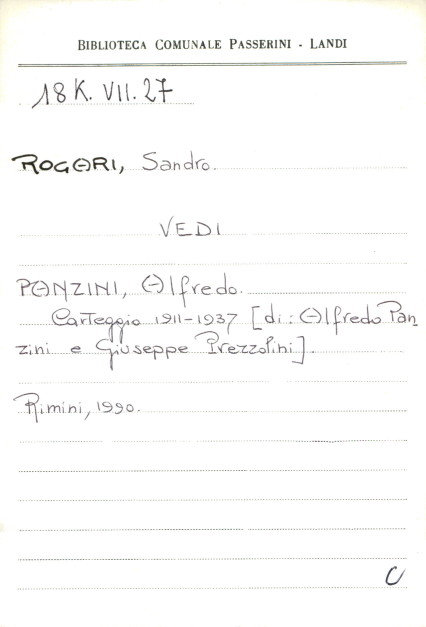 BIBLIOTECA COMUNALE PASSERINI - LANDI
18 K. VII. 27
ROGARI, Sandro.
VEDI
PANZINI, Alfredo.
Carteggio 1911-1937 [di: Alfredo Pan
zini e Giuseppe Prezzolini].
Rimini, 1990.
C